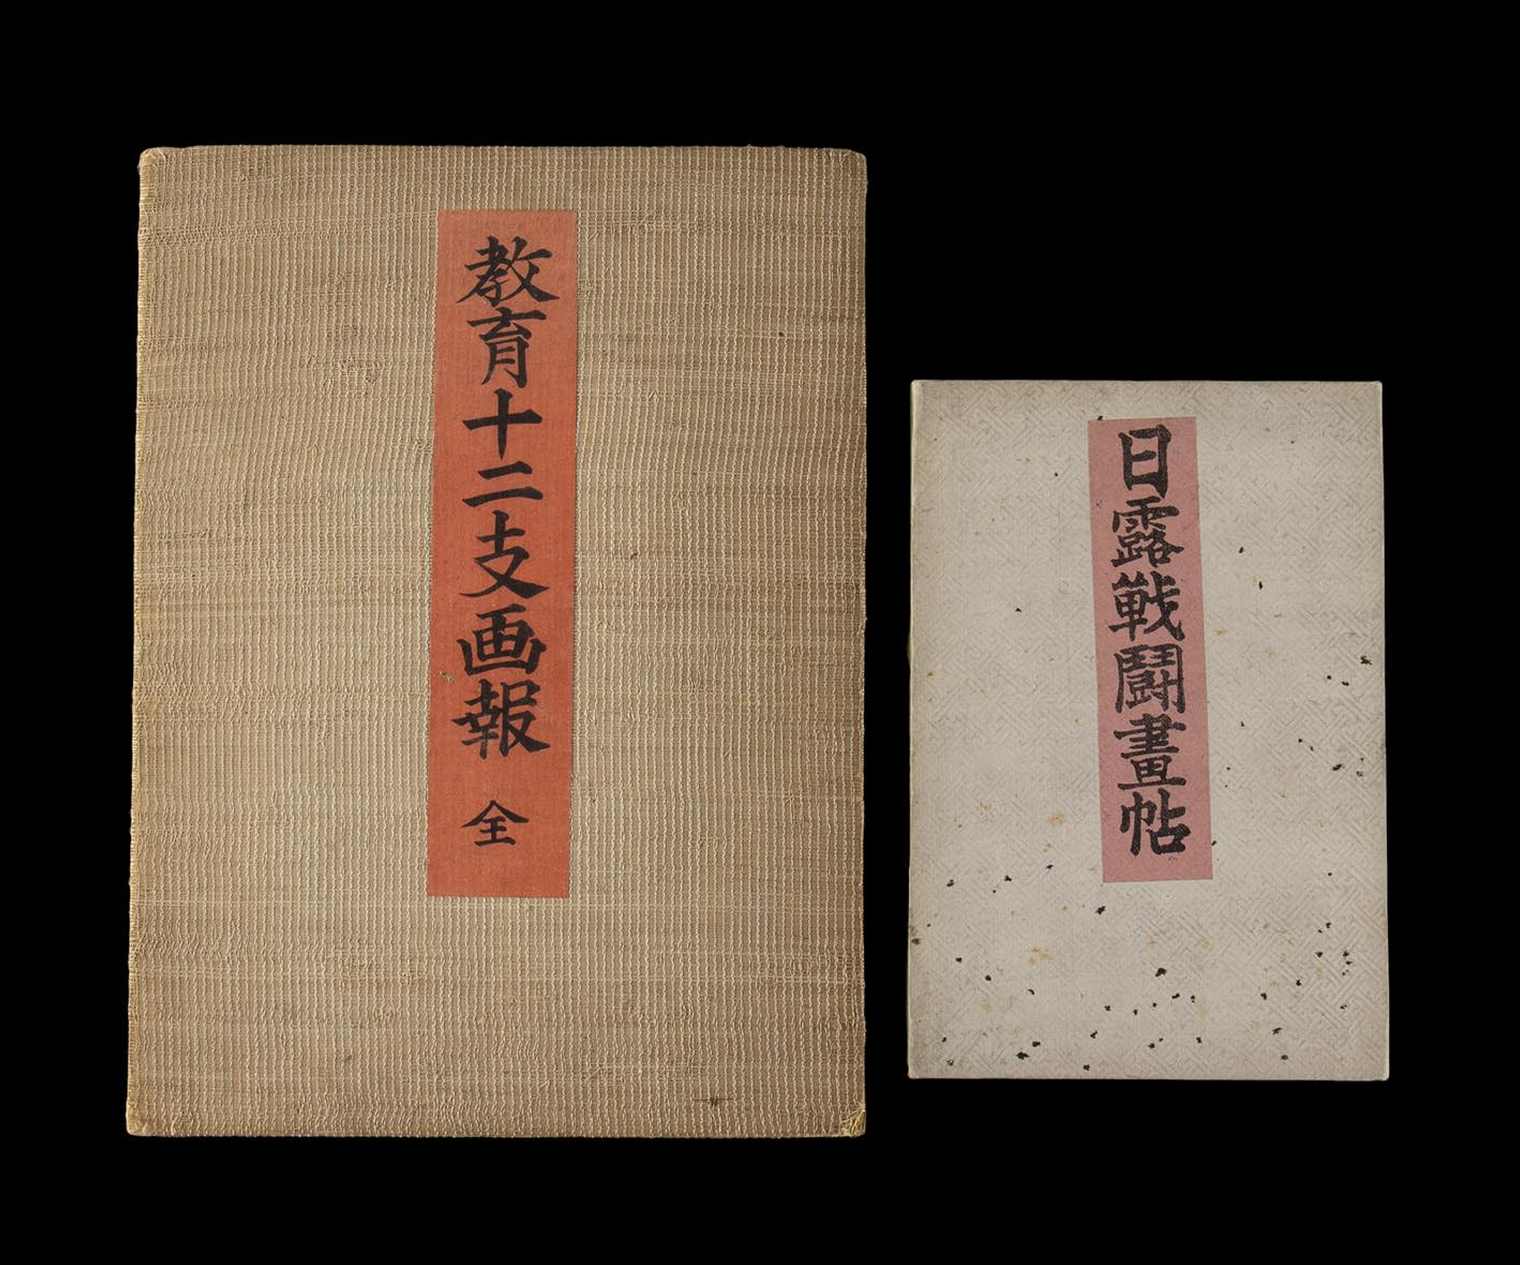 教育十二支画報 全
日露戦闘畫帖